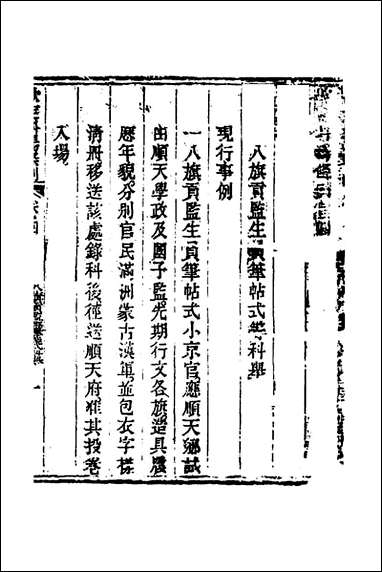 八旗貢監生員筆帖式等科舉
現行事例
一八旗貢監生員筆帖式小京官應順天鄉試
由順天學政及國子監先期行文各旗造具履
歷年貌分別官民滿洲蒙古漢軍並包衣字樣
清冊移送該處錄科後徑送順天府准其投卷
入場